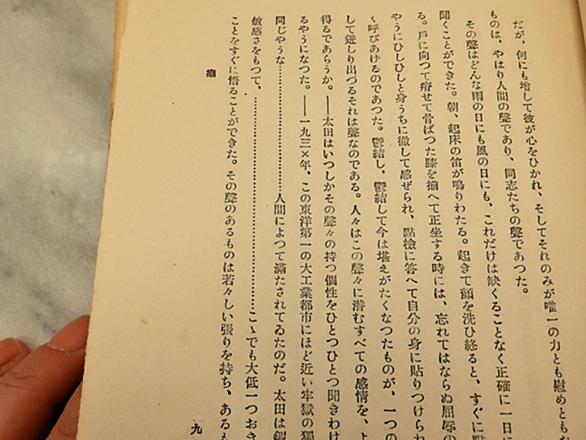 だが、何にも増して彼が心をひかれ、そしてそれのみが唯一の力とも慰めとも
ものは、やはり人間の聲であり、同志たちの聲であつた。
その聲はどんな雨の日にも風の日にも、これだけは缺くることなく正確に一日
聞くことができた。朝、起床の笛が鳴りわたる。起きて顔を洗ひ終ると、すぐに點
る。戸に向つて瘠せて骨ばつた膝を揃へて正坐する時には、忘れてはならぬ屈辱の
やうにひしひしと身うちに徹して感ぜられ、點檢に答へて自分の身に貼りつけられ
く呼びあげるのであつた。鬱結し、鬱結して今は堪えがたくなつたものが、一つの
して迸り出づるそれは聲なのである。人々はこの聲々に潜むすべての感情を、よ
得るであらうか。――太田はいつしかその聲々の持つ個性をひとつひとつ聞きわけ
るやうになつた。――一九三×年、この東洋第一の大工業都市にほど近い牢獄の獨
同じやうな…………………………人間によつて滿たされてゐたのだ。太田は鋭
敏感さをもつて、………………………………………こゝでも大低一つおき
ことをすぐに悟ることができた。その聲のあるものは若々しい張りを持ち、あるも
癩
九